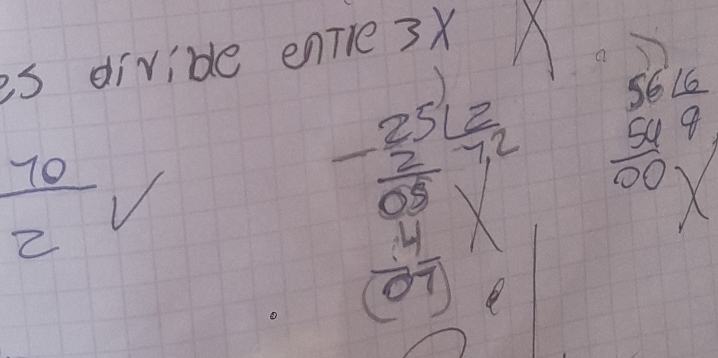 es divide entre 3X X
70
2 ✓
25 2
- 2 1,2
05 X
4
(01) e
56 6
54 9
00 X